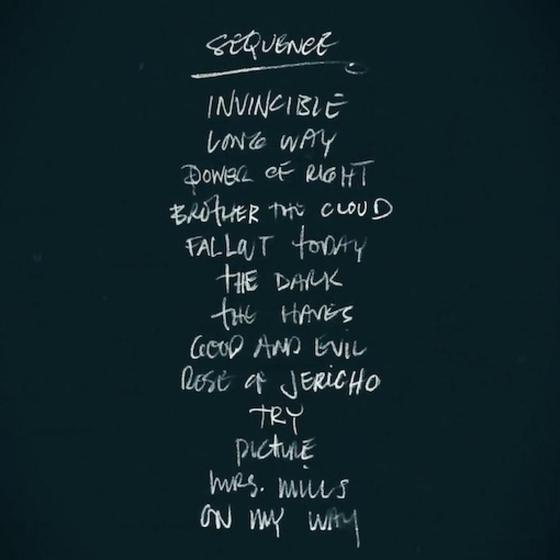 SEQUENCE
INVINCIBLE
LONG WAY
POWER OF RIGHT
BROTHER THE CLOUD
FALLOUT TODAY
THE DARK
THE HAVES
GOOD AND EVIL
ROSE OF JERICHO
TRY
PICTURE
MRS. MILLS
ON MY WAY